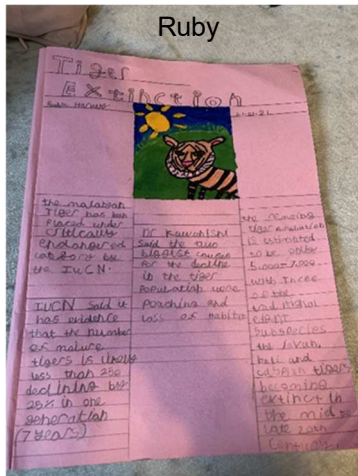 Ruby
Tiger
Extinction
21.01.21
the malayan
Tiger has been
placed under
critically
endangered
category by
the IUCN.
IUCN said it
has evidence
that the number
of mature
tigers is likely
less than 250
declining by
25% in one
generation
(7 years)
Dr Kawanishi
said the two
biggest causes
for the decline
in the tiger
population were
Poaching and
loss of habitat
the remaining
tiger population
is estimated
to be only
5,000-7,000
with three
of the
traditional
eight
subspecies
the Javan,
bali and
caspain tigers
becoming
extinct in
the mid to
late 20th
century.